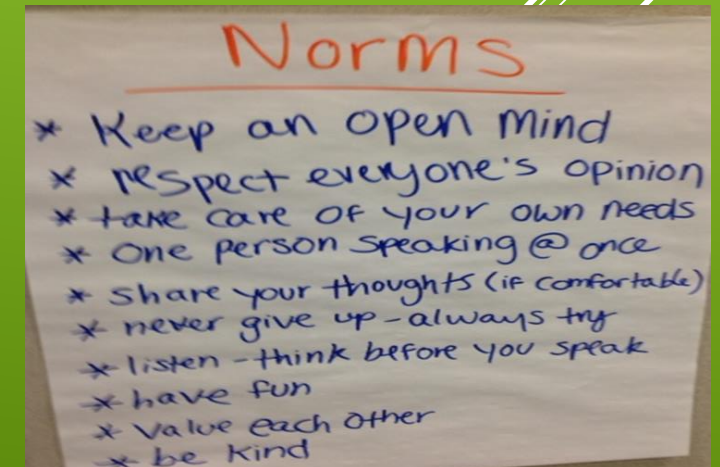 Norms
* Keep an open mind
* respect everyone's opinion
* take care of your own needs
* One person speaking @ once
* Share your thoughts (if comfortable)
* never give up - always try
* listen - think before you speak
* have fun
* Value each other
* be kind